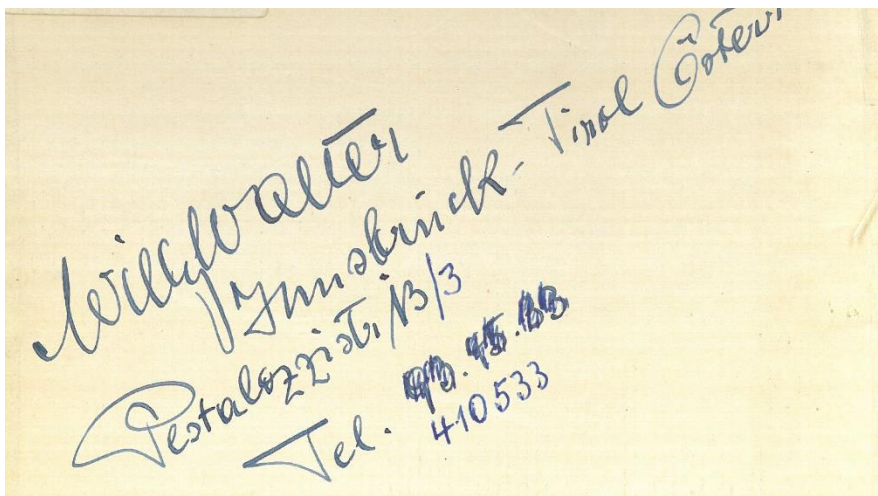 Willy Walter
Innsbruck-Tirol (Österr
Pestalozzistr. 13/3
Tel.
410533